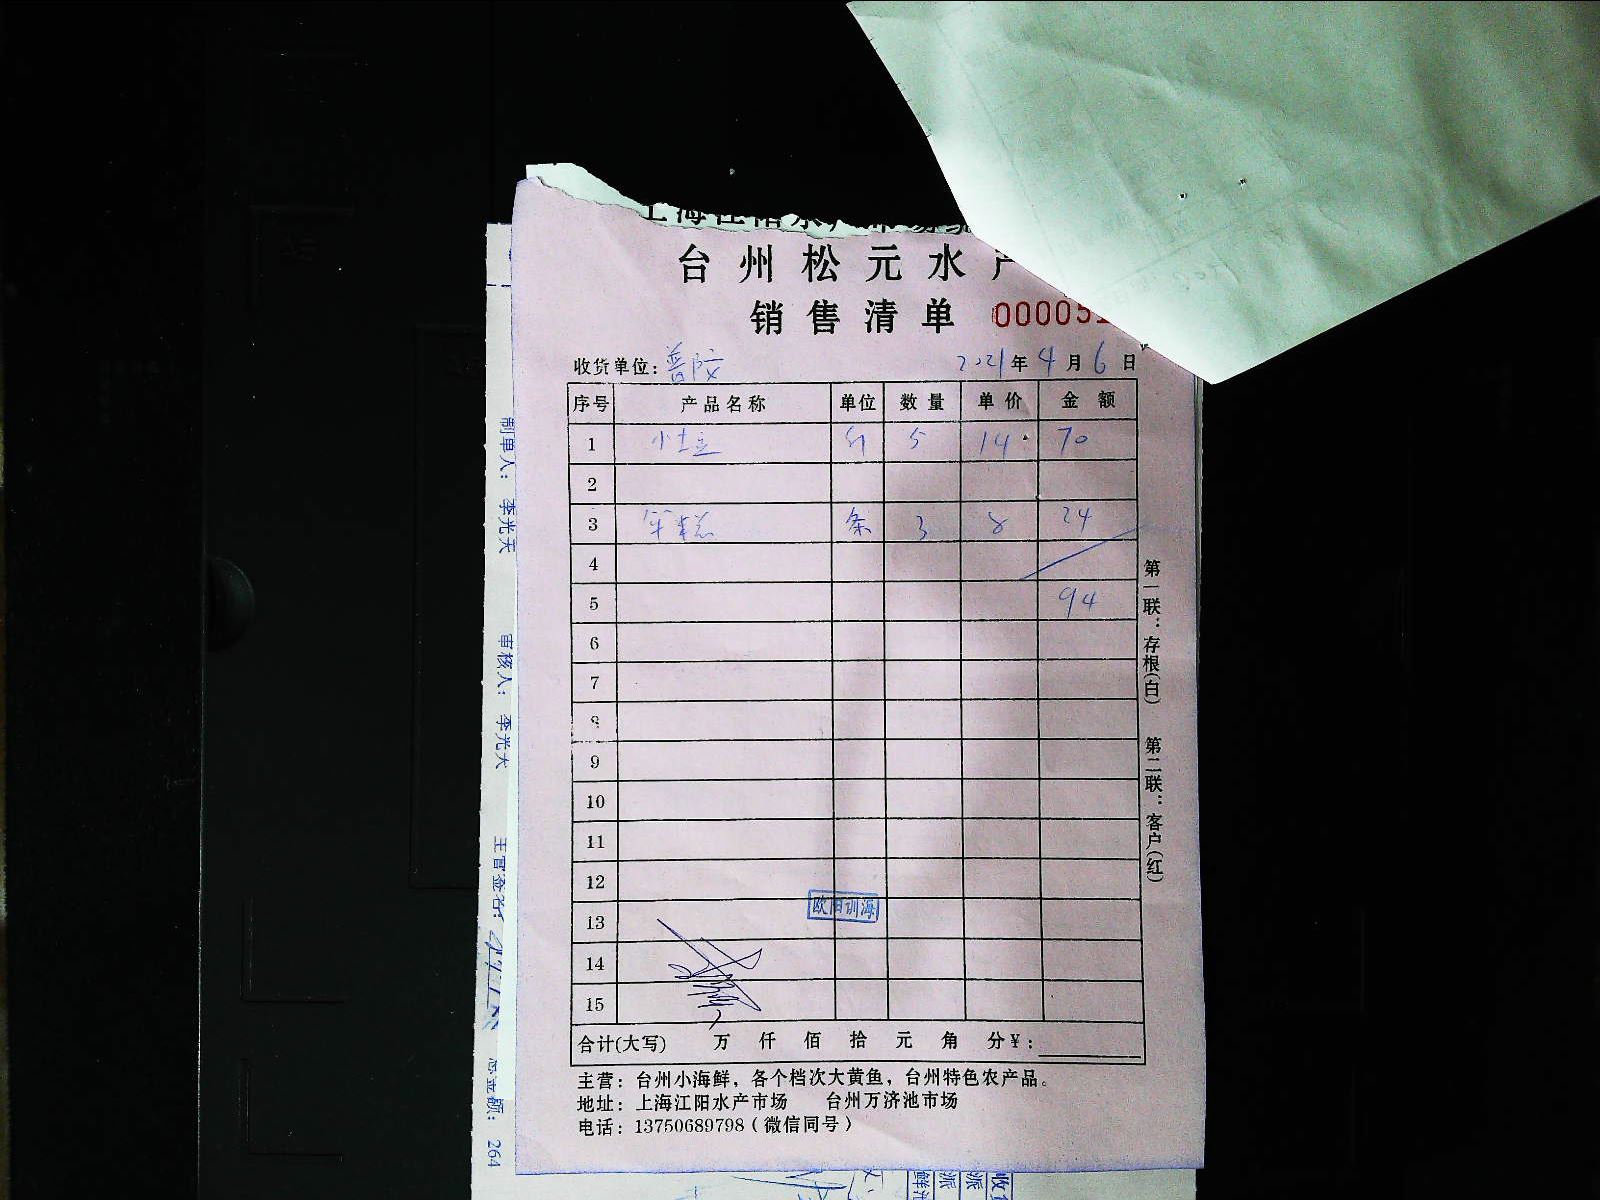 台州松元水产
销售清单 000051
收货单位：普陀 2021年4月6日
序号 产品名称 单位 数量 单价 金额
1 小土豆 斤 5 14 70
2
3 年糕 条 3 8 24
4
5 94
6
7
8
9
10
11
12
13 欧阳训海
14
15
合计(大写) 万 仟 佰 拾 元 角 分￥：
主营：台州小海鲜，各个档次大黄鱼，台州特色农产品。
地址：上海江阳水产市场 台州万济池市场
电话：13750689798（微信同号）
第一联：存根(白) 第二联：客户(红)
制单人： 李光天
审核人： 李光天
主管签名：
总金额： 264